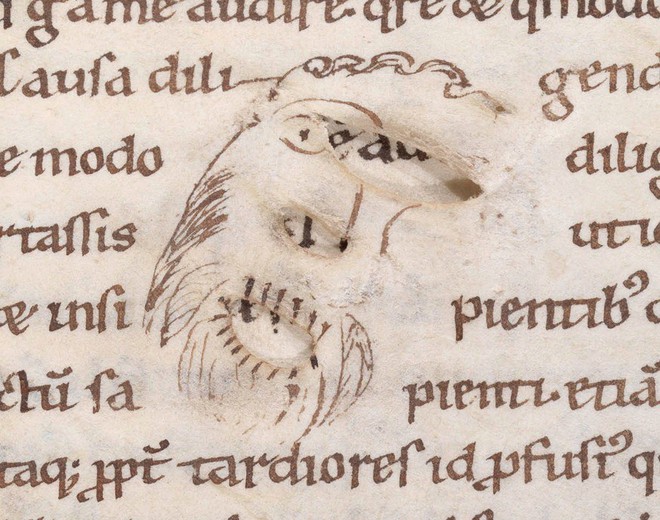 game audire. qre & qmodo
Causa dili gend
e modo dilig
rtassis utio
& insi pientib⁹ c
ctū sa pienti. etiā
taq; ꝓpt̄ tardiores id ꝓfusi⁹ q